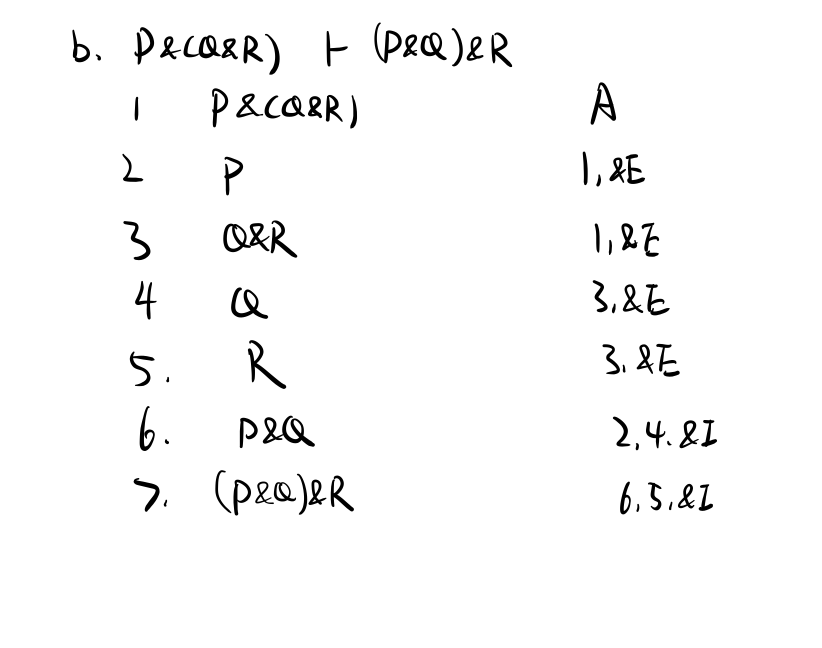 b. P&(Q&R) ⊢ (P&Q)&R
1 P&(Q&R) A
2 P 1,&E
3 Q&R 1,&E
4 Q 3,&E
5. R 3.&E
6. P&Q 2,4.&I
7. (P&Q)&R 6,5,&I